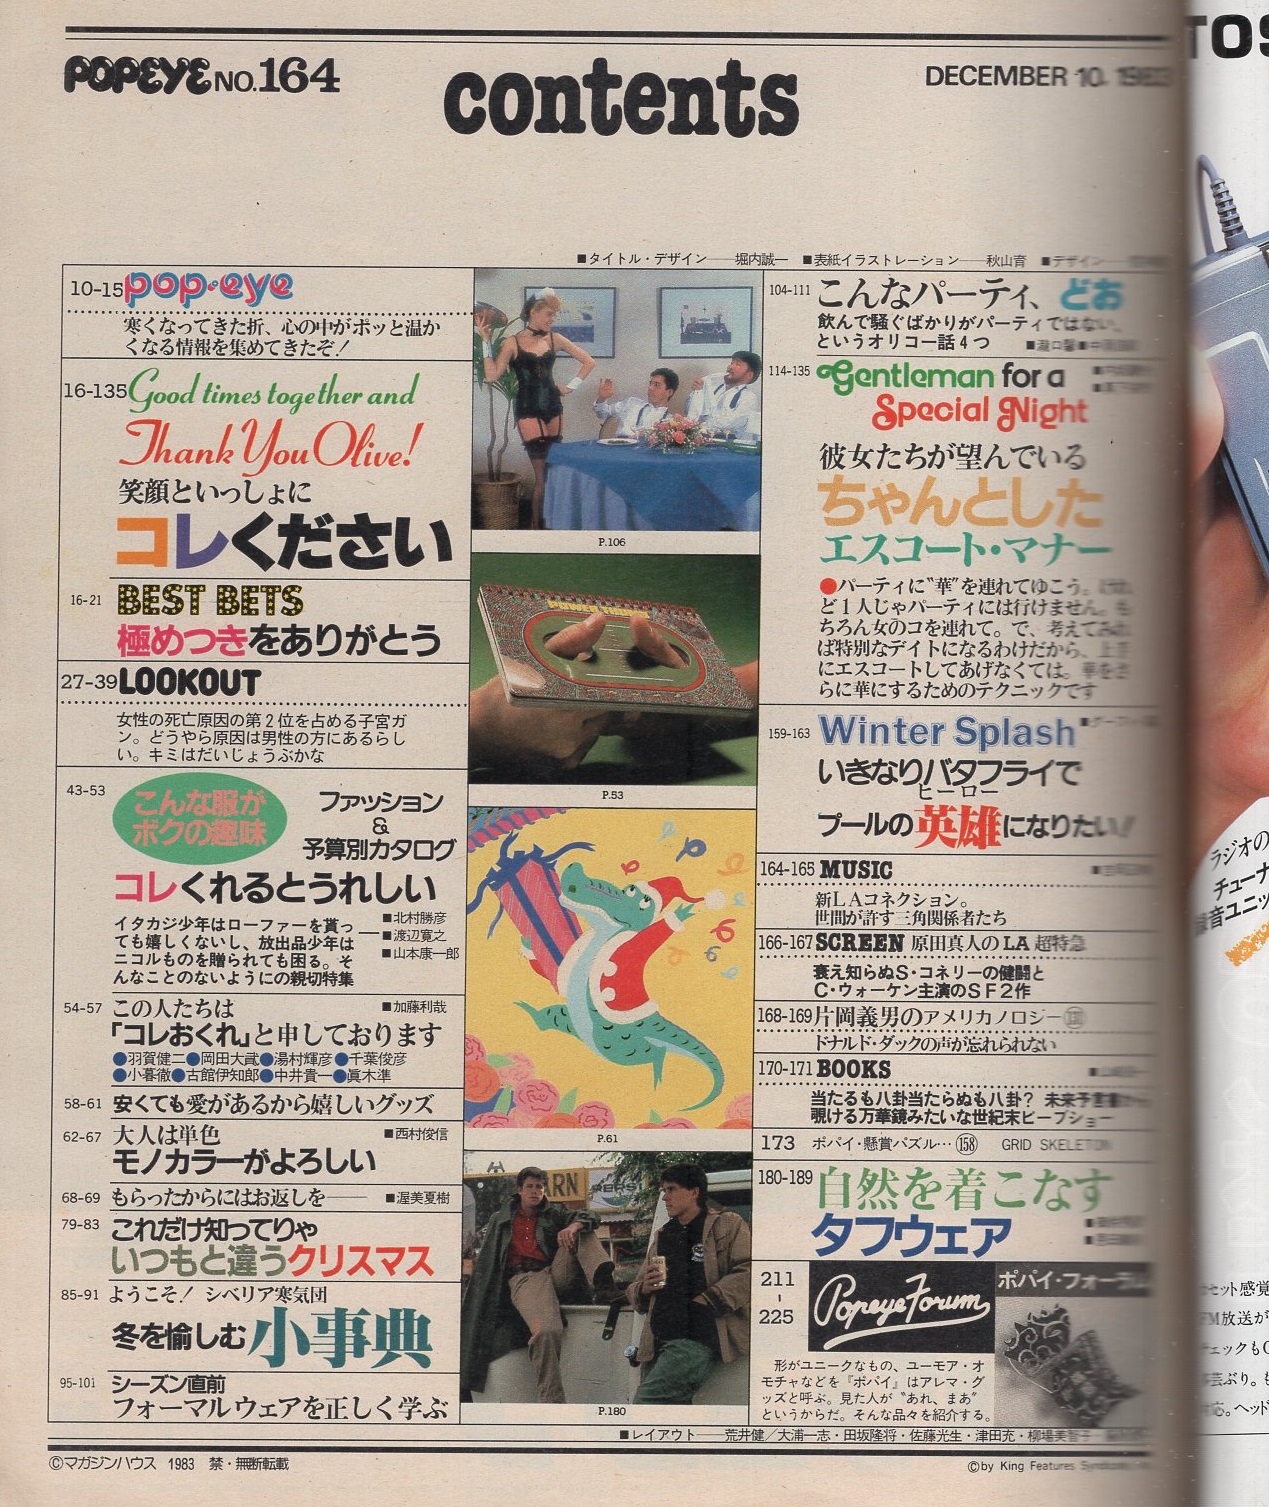 POPEYE NO.164
contents
DECEMBER 10. 1983
■タイトル・デザイン——堀内誠一 ■表紙イラストレーション——秋山育 ■デザイン
10-15 pop·eye
寒くなってきた折、心の中がポッと温か
くなる情報を集めてきたぞ!
16-135 Good times together and
Thank You Olive!
笑顔といっしょに
コレください
16-21 BEST BETS
極めつきをありがとう
27-39 LOOKOUT
女性の死亡原因の第2位を占める子宮ガ
ン。どうやら原因は男性の方にあるらし
い。キミはだいじょうぶかな
43-53 こんな服が
ボクの趣味
ファッション
&
予算別カタログ
コレくれるとうれしい
イタカジ少年はローファーを貰っ
ても嬉しくないし、放出品少年は
ニコルものを贈られても困る。そ
んなことのないようにの親切特集
■北村勝彦
■渡辺寛之
■山本康一郎
54-57 この人たちは ■加藤利哉
「コレおくれ」と申しております
●羽賀健二●岡田大貳●湯村輝彦●千葉俊彦
●小暮徹●古館伊知郎●中井貴一●眞木準
58-61 安くても愛があるから嬉しいグッズ
62-67 大人は単色 ■西村俊信
モノカラーがよろしい
68-69 もらったからにはお返しを—— ■渥美夏樹
79-83 これだけ知ってりゃ
いつもと違うクリスマス
85-91 ようこそ! シベリア寒気団
冬を愉しむ小事典
95-101 シーズン直前
フォーマルウェアを正しく学ぶ
P.106
POWER
P.53
P.61
P.180
104-111 こんなパーティ、どお
飲んで騒ぐばかりがパーティではない、
というオリコー話4つ
114-135 Gentleman for a
Special Night
彼女たちが望んでいる
ちゃんとした
エスコート・マナー
●パーティに“華”を連れてゆこう。
ど1人じゃパーティには行けません。も
ちろん女のコを連れて。で、考えてみれ
ば特別なデイトになるわけだから、上手
にエスコートしてあげなくては。華をさ
らに華にするためのテクニックです
159-163 Winter Splash
いきなりバタフライで
ヒーロー
プールの英雄になりたい!
164-165 MUSIC
新LAコネクション。
世間が許す三角関係者たち
166-167 SCREEN 原田真人のLA超特急
衰え知らぬS・コネリーの健闘と
C・ウォーケン主演のSF2作
168-169 片岡義男のアメリカノロジー
ドナルド・ダックの声が忘れられない
170-171 BOOKS
当たるも八卦当たらぬも八卦? 未来予言書から
覗ける万華鏡みたいな世紀末ピープショー
173 ポパイ・懸賞パズル…(158) GRID SKELETON
180-189 自然を着こなす
タフウェア
211-225 Popeye Forum ポパイ・フォーラム
形がユニークなもの、ユーモア・オ
モチャなどを『ポパイ』はアレマ・グ
ッズと呼ぶ。見た人が“あれ、まあ”
というからだ。そんな品々を紹介する。
■レイアウト——荒井健/大浦一志・田坂隆将・佐藤光生・津田充・柳場美智子
©マガジンハウス 1983 禁・無断転載
©by King Features Syndicate
TOS
ラジオの
チューナ
録音ユニッ
カセット感覚
FM放送が
チェックも
芸ぶり。も
対応。ヘッド